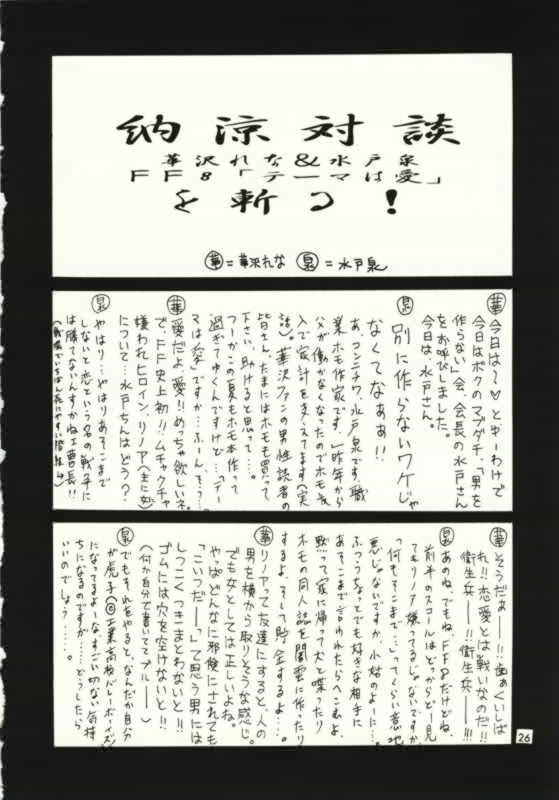 納涼対談
華沢れな&水戸泉
FF8「テーマは愛」
を斬る!
華=華沢れな 泉=水戸泉
華 今日は〜♡とゆーわけで
今日はボクのマブダチ、「男を
作らない」会、会長の水戸さん
をお呼びしました。
今日は、水戸さん。
泉 別に作らないワケじゃ
なくてなぁぁ!!
あ、コンニチワ、水戸泉です。職
業ホモ作家です。」昨年から
父が働かなくなったのでホモ収
入で家計をささえてます(実
話)。華沢ファンの男性読者の
皆さん、たまにはホモも買って
下さい、助けると思って……。
つーかこの夏もホモ本作って
過ぎてゆくんですけど…。「テー
マは愛」ですか…ふーん、そう…。
華 愛だよ、愛!!めちゃ欲しいネ。
で、FF史上初!!ムチャクチャ
嫌われヒロイン、リノア(主に女)
について…水戸さんはどう?
泉 やはり…やはりあそこまで
しないと恋という名の戦争に
は勝てないんすかね、工曹長!!
華 そうだぁ──!!歯ぁくいしば
れ!!恋愛とは戦いなのだ!!
衛生兵──!!衛生兵──!!!
泉 あのね、でもね、FF8だけどね、
前半のスコールはどっからどー見
てもリノア嫌ってるじゃないですか。
「何もそこまで…」ってくらい意地
悪じゃないですか、小姑のように…。
ふつうちょっとでも好きな相手に
あそこまで言われたらへこむよ。
黙って家に帰って犬と喋ったり
ホモの同人誌を闇雲に作ったり
するよ。そして貯金するよ……。
華 リノアって友達にすると、人の
男を横から取りそうな感じ。
でも女としては正しいよね。
やっぱどんなに邪険にされても
「こいつだーっ」て思う男には
しつこくつきまとわないと!!
ゴムには穴を空けないと!!
(何か自分で書いててブルー──)
泉 でもそれをやると、なんだか自分
が虎子(©工業高校バレーボーイズ)
になってるよーな、すごい切ない気持
ちになるのですが……どうしたら
いいのでしょう……。
26